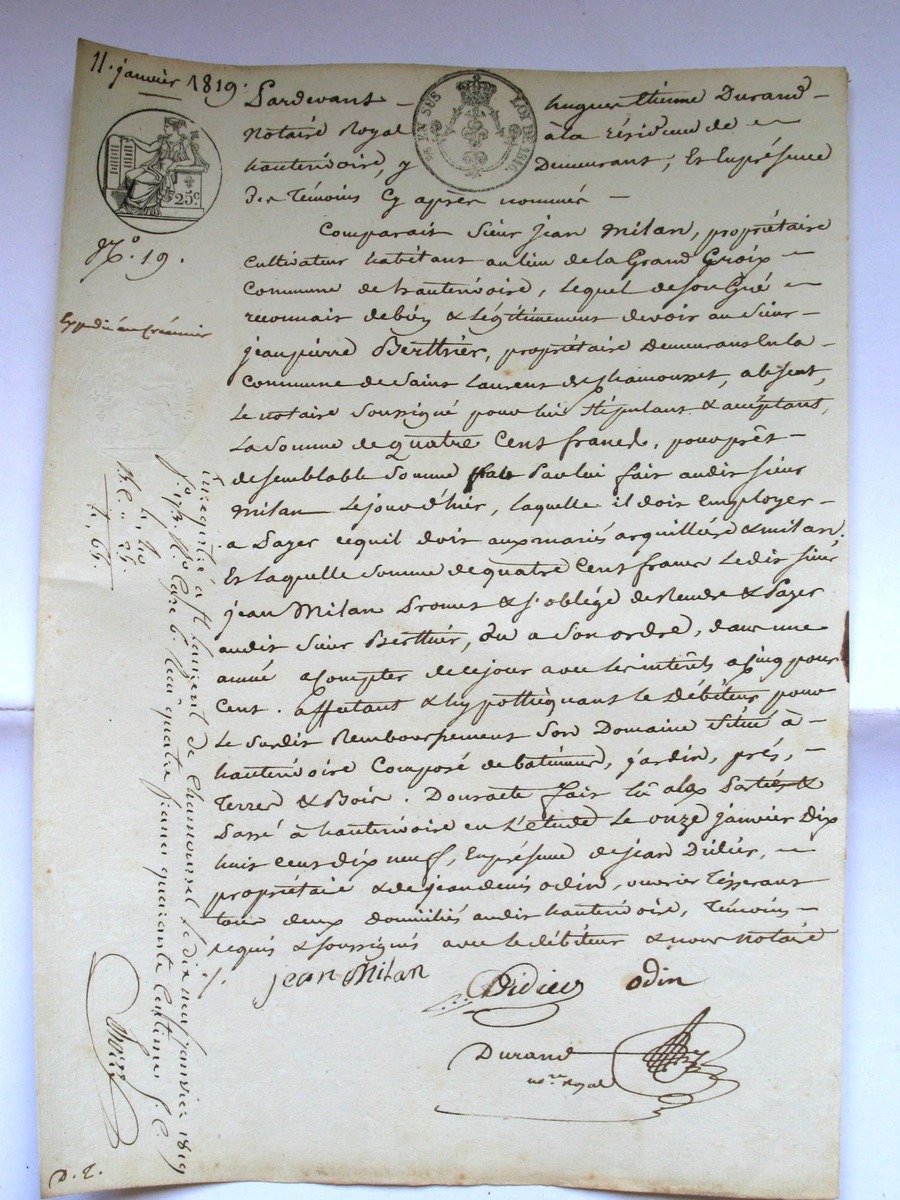 11. janvier 1819.
Pardevant - hugues Etienne Durand -
Notaire Royal à la résidence de -
hauterivoire, y Demeurant, Et Enprésence
Des Témoins Cy après nommés -
EN SUS LOI DE 1816.
25c
No. 19.
Expedié au Créancier
Comparait Sieur jean Milan, propriétaire
Cultivateur habitant au lieu de la Grand Croix -
Commune de hauterivoire, Lequel de son Gré -
reconnait debien & Légitimement devoir au Sieur
jeanpierre Berthier, propriétaire Demeurant En la -
Commune de Saint Laurent de Chamousset, absent,
Le notaire Soussigné pour lui Stipulant & acceptant,
La Somme de quatre Cent francs, pour prêt -
de semblable Somme Par lui fait audit Sieur
Milan Le jour d'hier, Laquelle il doit Employer -
a Payer cequil doit aux mariés arquillière & milan.
Et Laquelle Somme de quatre Cent francs Ledit Sieur
jean Milan Promet & s'oblige de Rendre & Payer
audit Sieur Berthier, ou a Son ordre, dans une
année a Compter de ce jour avec les intérêts a Cinq pour
Cent. affectant & hypothéquant le Débiteur pour
Le Susdit Remboursement Son Domaine Situé à -
hauterivoire Composé de batiments, jardin, prés, -
Terres & Bois. Dont acte fait lû aux Parties &
Passé à hauterivoire en L'etude Le onze janvier Dix
huit Cent dix neuf, Enprésence de jean Didier, -
propriétaire & de jean denis odin, ouvrier Tisserant
tous deux domiciliés audit hauterivoire, Témoins -
requis & Soussignés avec le débiteur & nous notaire
jean Milan Didier odin
Durand
nore Royal
Enregistré à St Laurent de Chamousset le dix neuf janvier 1819
fo 173 Ro Case 6e Reçu quatre francs quarante centimes S. C.
4, 40
D. T.